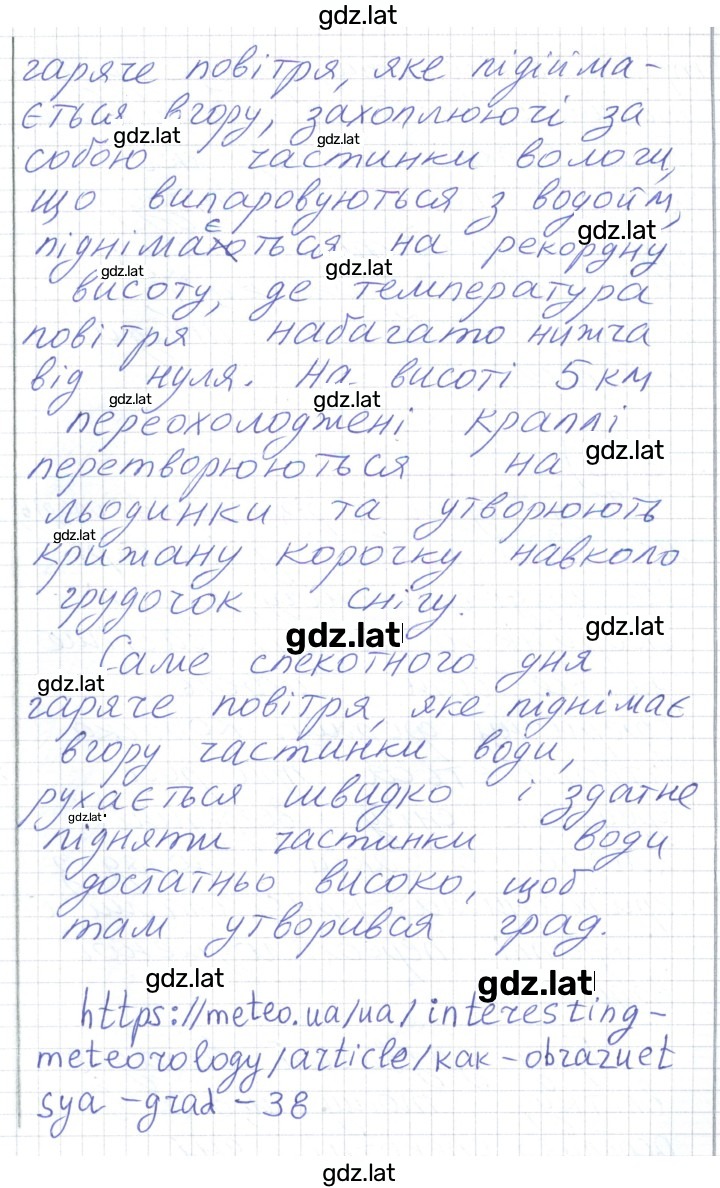 gdz.lat
гаряче повітря, яке підійма-
ється вгору, захоплюючі за
gdz.lat gdz.lat
собою частинки вологи,
що випаровуються з водойм,
gdz.lat
піднімається на рекордну
gdz.lat gdz.lat
висоту, де температура
повітря набагато нижча
від нуля. На висоті 5 км
gdz.lat gdz.lat
переохолоджені краплі
gdz.lat
перетворюються на
льодинки та утворюють
gdz.lat
крижану корочку навколо
грудочок снігу.
gdz.lat gdz.lat
Саме спекотного дня
gdz.lat
гаряче повітря, яке піднімає
вгору частинки води,
рухається швидко і здатне
gdz.lat
підняти частинки води
достатньо високо, щоб
там утворився град.
gdz.lat gdz.lat
https://meteo.ua/ua/interesting-
meteorology/article/kak-obrazuet
sya-grad-38
gdz.lat